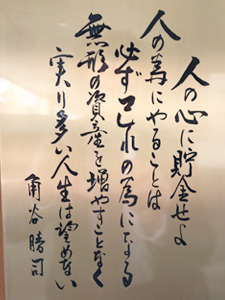 人の心に貯金せよ
人の為にやることは
必ず己れの為になる
無形の資産を増やすことなく
実り多い人生は望めない
角谷勝司